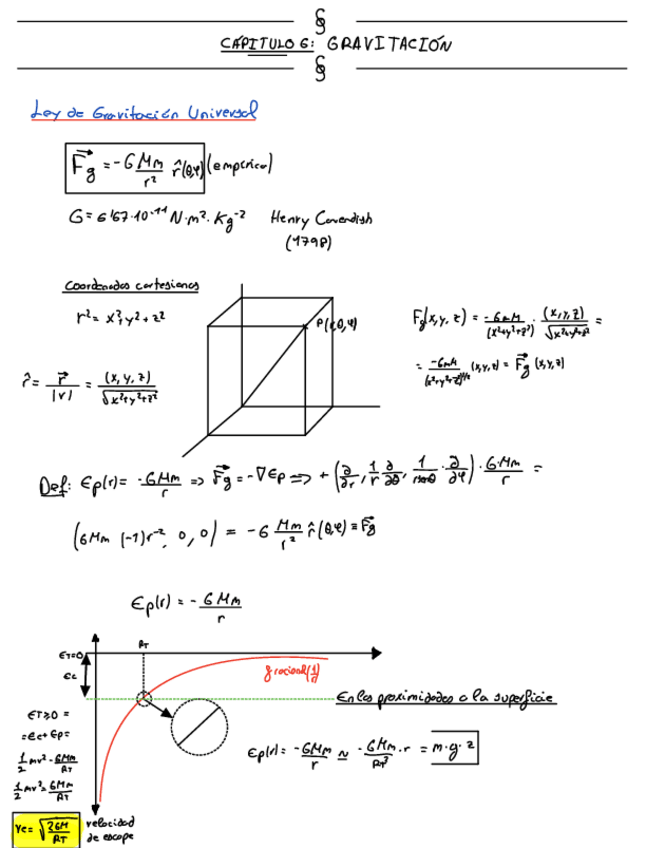 CAPÍTULO 6: GRAVITACIÓN
Ley de Gravitación Universal
F⃗g = -G Mm/r² r̂(θ,φ) (empírica)
G = 6'67·10⁻¹¹ N·m²·Kg⁻² Henry Cavendish
(1798)
Coordenadas cartesianas
r² = x²+y²+z²
P(r,θ,φ)
Fg(x,y,z) = -GmM/(x²+y²+z²) · (x,y,z)/√x²+y²+z² =
= -GmM/(x²+y²+z²)^3/2 (x,y,z) = F⃗g (x,y,z)
r̂ = r⃗/|r| = (x,y,z)/√x²+y²+z²
Def: Ep(r) = -GMm/r => F⃗g = -∇Ep => + (∂/∂r, 1/r ∂/∂θ, 1/rsenθ · ∂/∂φ) · G·Mm/r =
(GMm (-1)r⁻², 0, 0) = -G Mm/r² r̂(θ,φ) ≡ F⃗g
Ep(r) = - GMm/r
RT
ET=0
Ec
En las proximidades a la superficie
ET≥0 =
=Ec+Ep=
1/2 mv² - GMm/RT
1/2 mv² = GMm/RT
Ep(r) = -GMm/r ≃ -GMm/RT² · r = m·g·z
Ve = √2GM/RT
velocidad
de escape